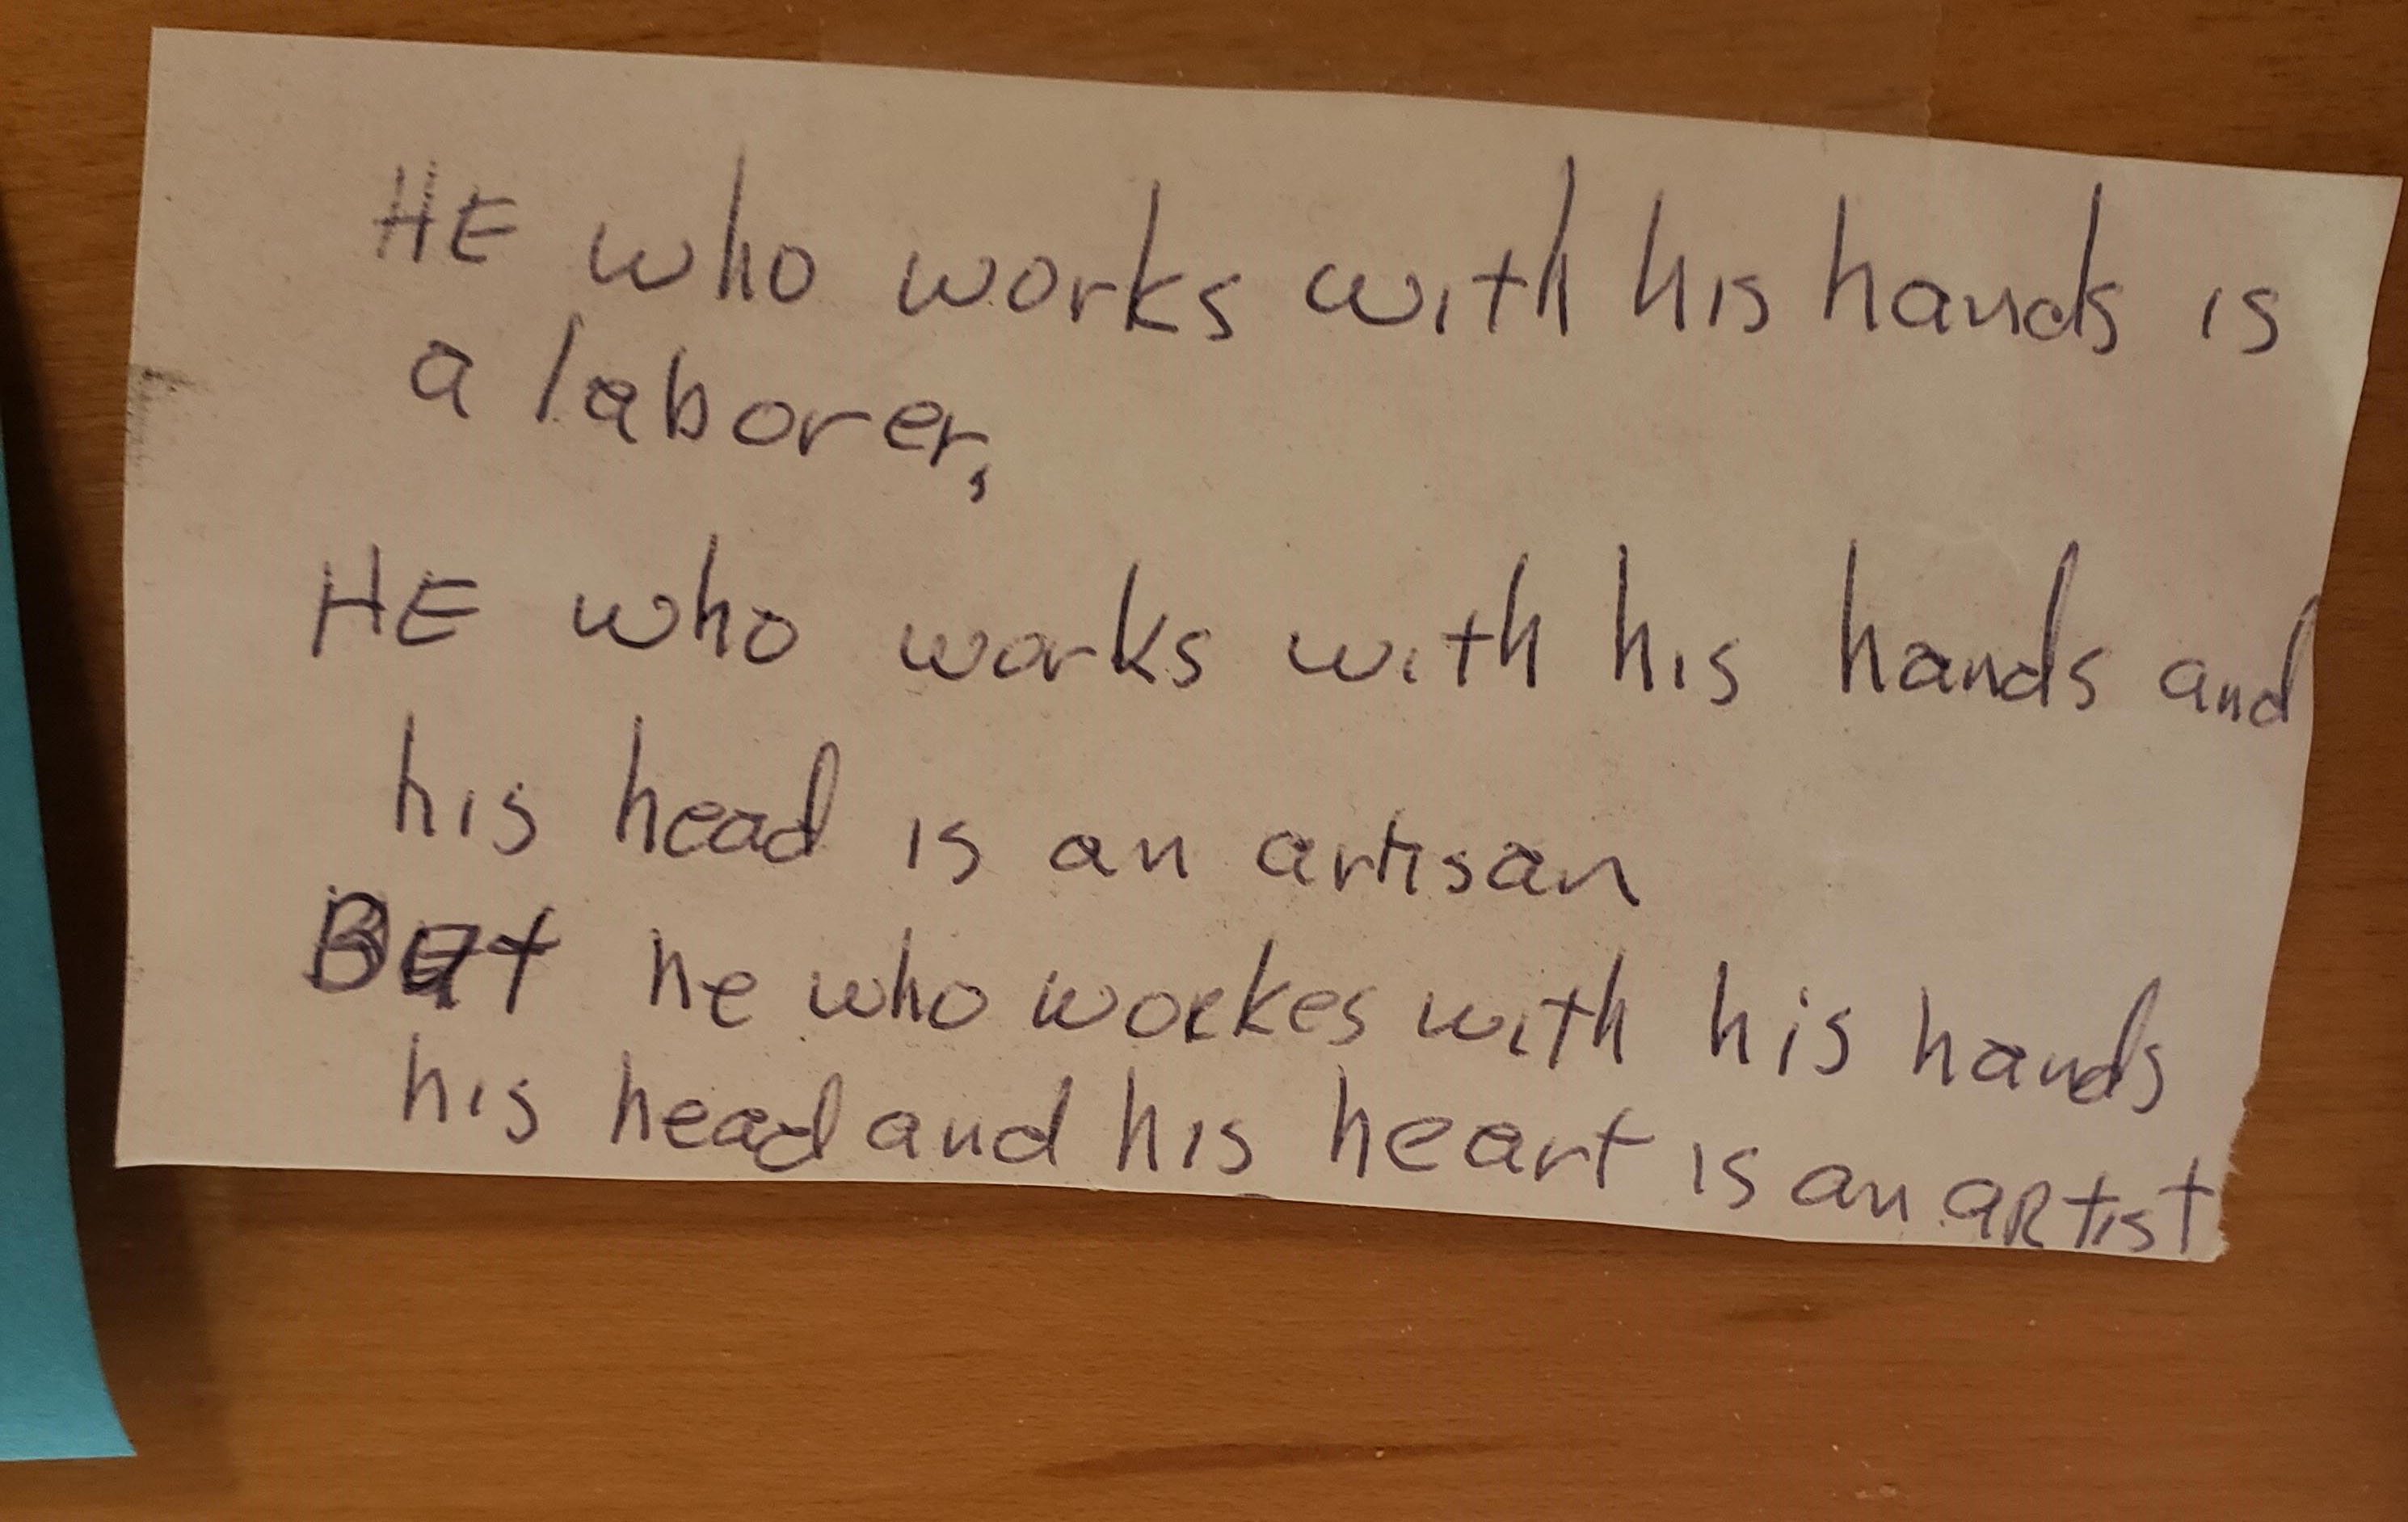 HE who works with his hands is
a laborer,
HE who works with his hands and
his head is an artisan
But he who workes with his hands
his head and his heart is an aRtist